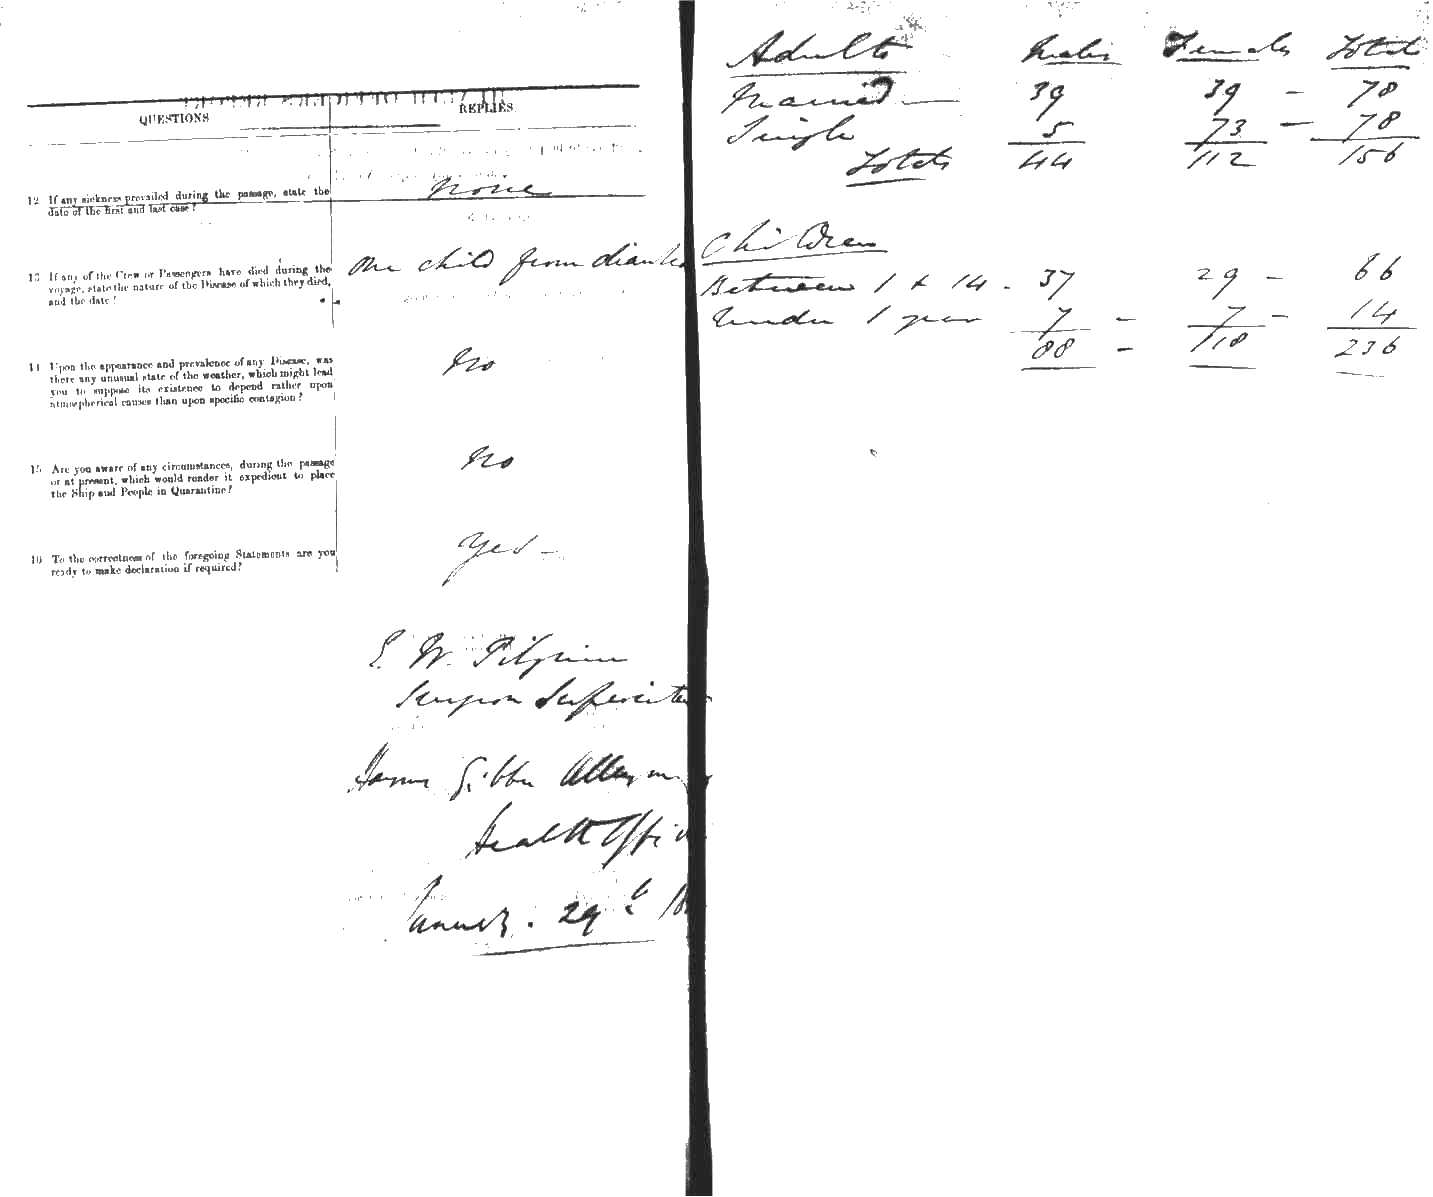 QUESTIONS
REPLIES
12 If any sickness prevailed during the passage, state the
date of the first and last case?
none
13 If any of the Crew or Passengers have died during the
voyage, state the nature of the Disease of which they died,
and the date?
One child from
14 Upon the appearance and prevalence of any Disease, was
there any unusual state of the weather, which might lead
you to suppose its existence to depend rather upon
atmospherical causes than upon specific contagion?
No
15 Are you aware of any circumstances, during the passage
or at present, which would render it expedient to place
the Ship and People in Quarantine?
No
16 To the correctness of the foregoing Statements are you
ready to make declaration if required?
Yes -
E. W. Pilgrim
Surgeon
Gibbes
Health
January. 29th
Adults Males Females Totals
Married - 39 39 - 78
Single 5 73 - 78
Totals 44 112 156
Children
Between 1 & 14 - 37 29 - 66
Under 1 year 7 - 7 - 14
88 - 118 236